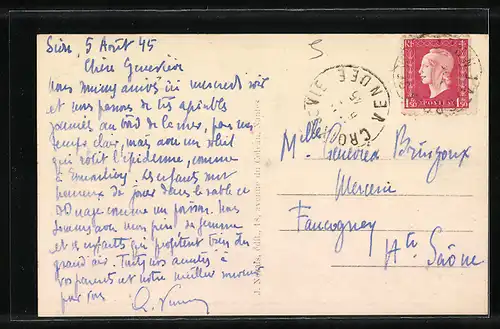 Sion, 5 Août 45
Chère Geneviève
Nous sommes arrivés ici mercredi soir
et nous passons de très agréables
journées au bord de la mer, pas un
temps clair, mais avec un soleil
qui rôtit l'épiderme, comme
à . Les enfants sont
heureux de jouer dans le sable et
DD nage comme un poisson. Nous
sommes avec mon père, ma femme
et les enfants qui profitent bien du
grand air. Toutes nos amitiés à
vos parents et notre meilleur souvenir
pour vous
J. Nozais, Édit., 18, avenue du Nantes
5
CROIX DE VIE
VENDEE
RF
POSTES
1F50
Mlle Geneviève
Mercerie
Faucogney
Hte Saône